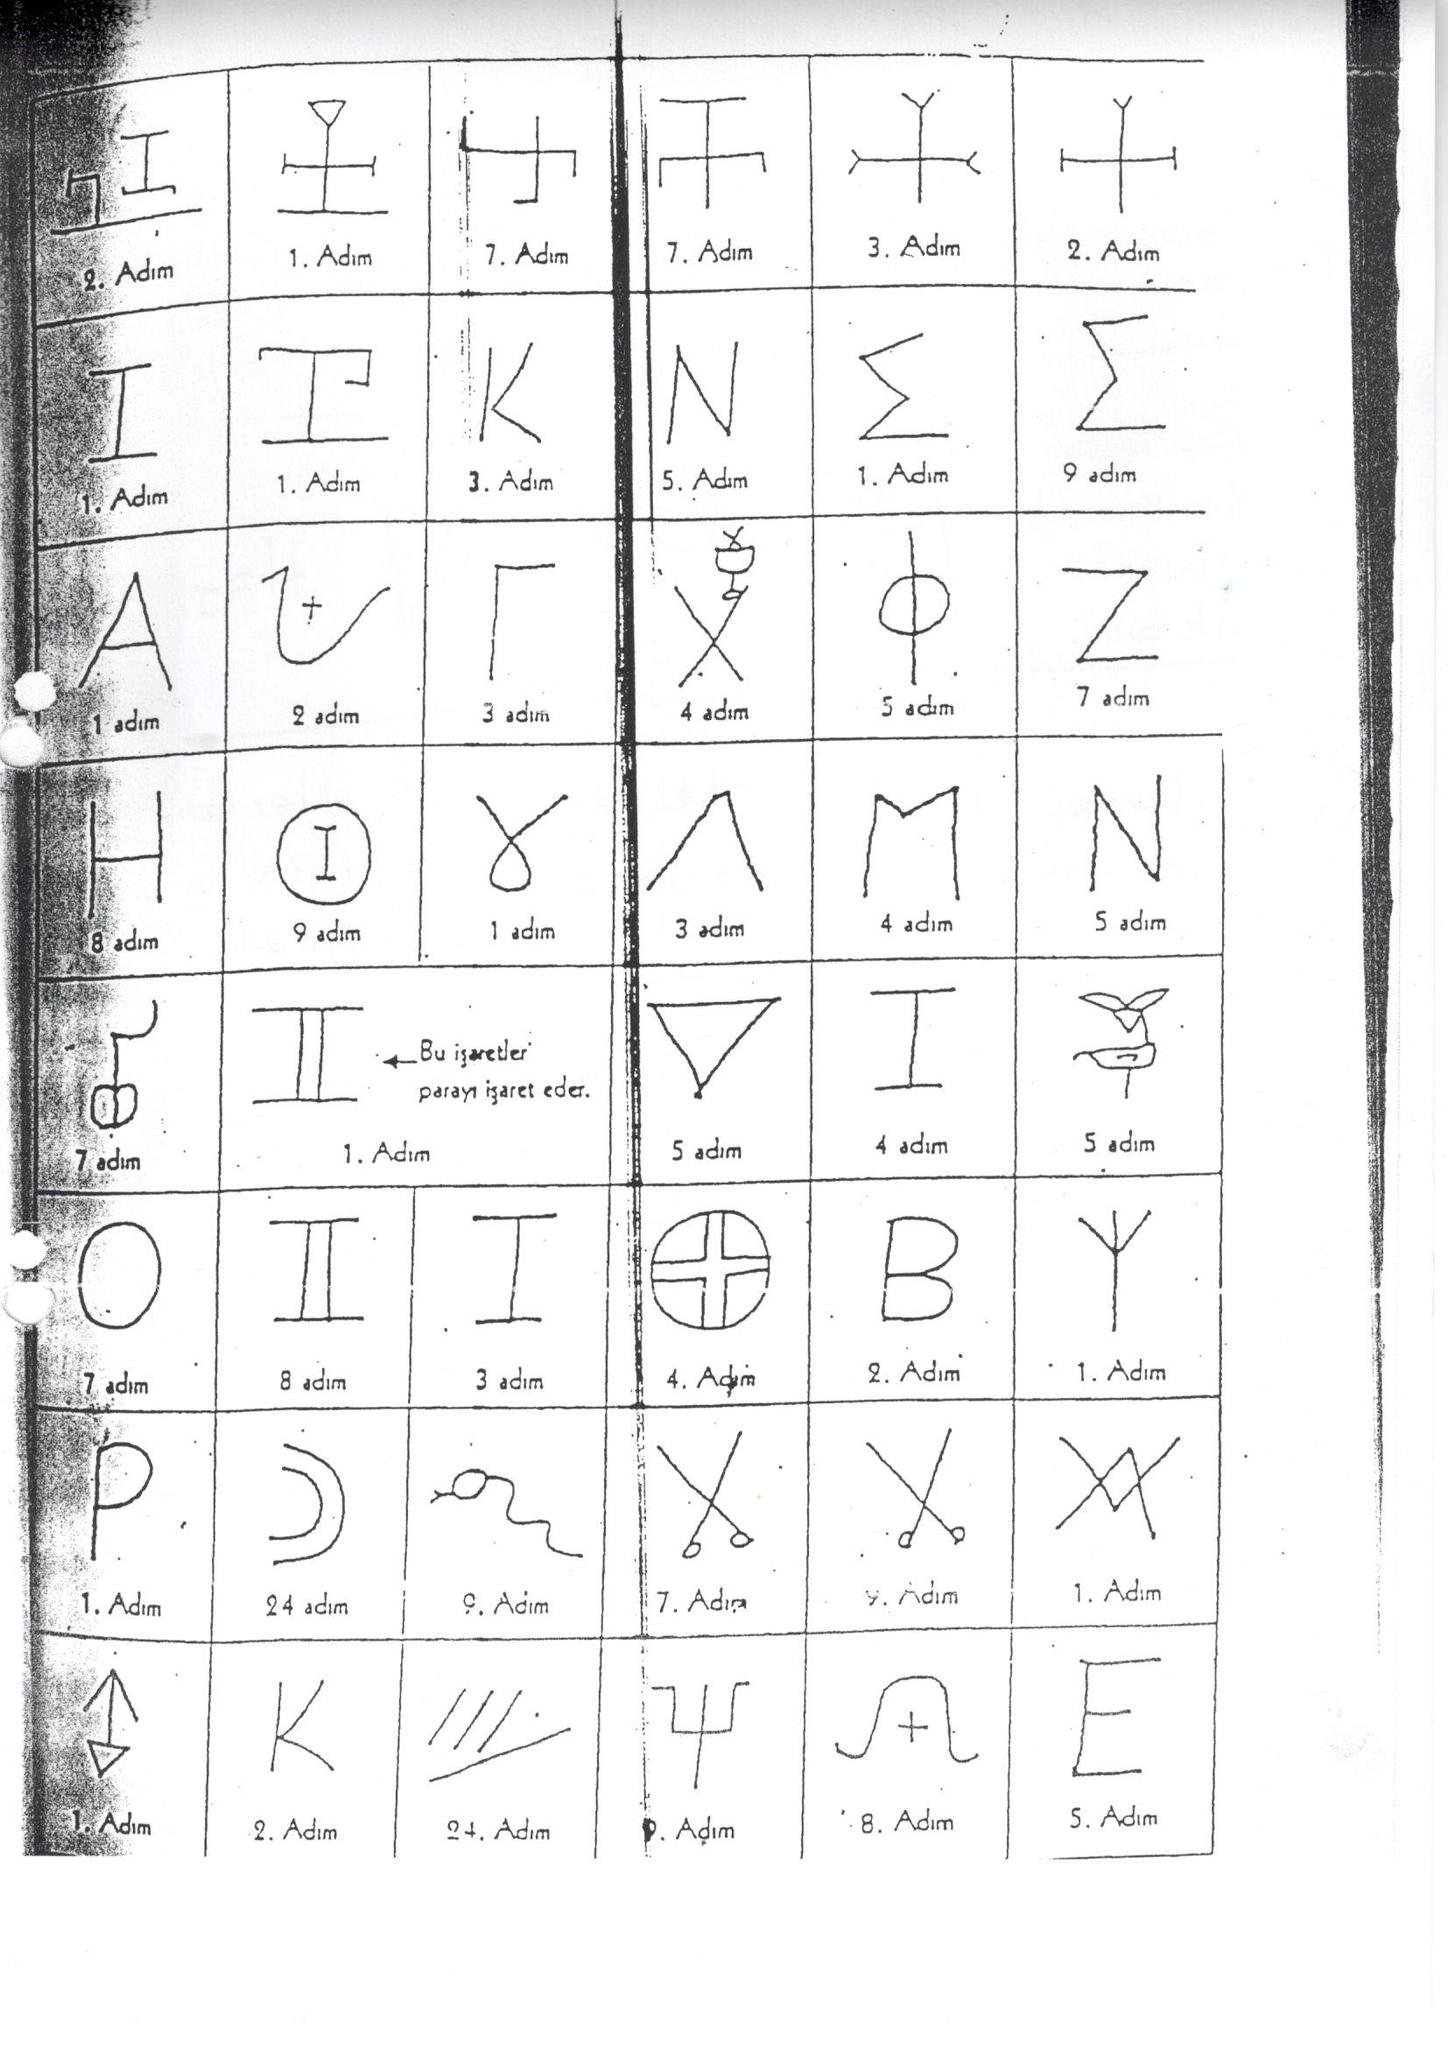 2. Adım 1. Adım 7. Adım 7. Adım 3. Adım 2. Adım
I I K N Σ Σ
1. Adım 1. Adım 3. Adım 5. Adım 1. Adım 9 adım
A Γ X Φ Z
1 adım 2 adım 3 adım 4 adım 5 adım 7 adım
H I Λ M N
8 adım 9 adım 1 adım 3 adım 4 adım 5 adım
II I
← Bu işaretler
parayı işaret eder.
7 adım 1. Adım 5 adım 4 adım 5 adım
O II I B
7 adım 8 adım 3 adım 4. Adım 2. Adım 1. Adım
P
1. Adım 24 adım 9. Adım 7. Adım Adım 1. Adım
K E
1. Adım 2. Adım 24. Adım 9. Adım 8. Adım 5. Adım